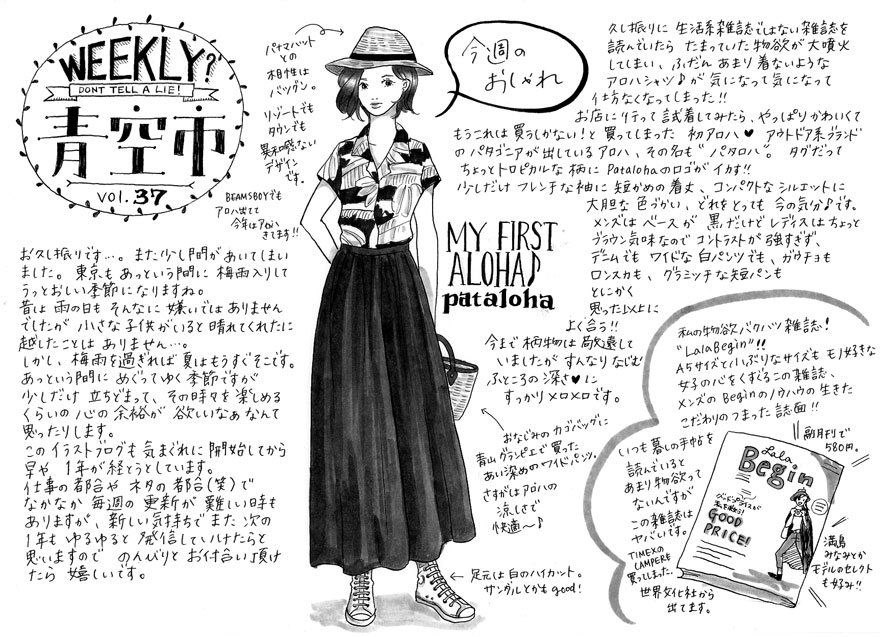 WEEKLY?
DON'T TELL A LIE!
青空市
VOL. 37
お久し振りです…。また少し間があいてしまい
ました。東京もあっという間に梅雨入りして
うっとおしい季節になりますね。
昔は雨の日もそんなに嫌いではありません
でしたが小さな子供がいると晴れてくれたに
越したことはありません…。
しかし、梅雨を過ぎれば夏はもうすぐそこです。
あっという間にめぐってゆく季節ですが
少しだけ立ちどまって、その時々を楽しめる
くらいの心の余裕が欲しいなぁなんて
思ったりします。
このイラストブログも気まぐれに開始してから
早や1年が経とうとしています。
仕事の都合やネタの都合(笑)で
なかなか毎週の更新が難しい時も
ありますが、新しい気持ちでまた次の
1年もゆるゆると発信していけたらと
思いますので のんびりとお付合い頂け
たら嬉しいです。
パナマハット
との
相性は
バツグン。
リゾートでも
タウンでも
違和感ない
デザイン
です。
BEAMSBOYでも
アロハ出てて
今年はアロハ
きてます!!
今週の
おしゃれ
久し振りに生活系雑誌でない雑誌を
読んでいたら たまっていた物欲が大噴火
してしまい、ふだんあまり着ないような
アロハシャツ♪が気になって気になって
仕方なくなってしまった!!
お店に行って試着してみたら、やっぱりかわいくて
もうこれは買うしかない!と買ってしまった 初アロハ♥ アウトドア系ブランド
のパタゴニアが出しているアロハ、その名も"パタロハ"。タグだって
ちょっとトロピカルな柄にPatalohaのロゴがイカす!!
少しだけフレンチな袖に短かめの着丈、コンパクトなシルエットに
大胆な色づかい、どれをとっても今の気分♪です。
メンズはベースが黒だけどレディスはちょっと
ブラウン気味なのでコントラストが強すぎず、
デニムでもワイドな白パンツでも、ガウチョも
ロンスカも、グラミッチな短パンも
とにかく
思った以上に
よく合う!!
MY FIRST
ALOHA♪
pataloha
今まで柄物は敬遠して
いましたがすんなりなじむ
ふところの深さ♥に
すっかりメロメロです。
おなじみのカゴバッグに
青山グランピエで買った
あい染めのワイドパンツ。
さすがはアロハの
涼しさで
快適〜♪
足元は白のハイカット。
サンダルとかもgood!
私の物欲バクハツ雑誌!
"LaLaBegin"!!
A5サイズと小ぶりなサイズもモノ好きな
女子の心をくすぐるこの雑誌、
メンズのBeginのノウハウの生きた
こだわりのつまった誌面!!
隔月刊で
580円。
いつも暮しの手帖を
読んでいると
あまり物欲って
ないんですが
この雑誌は
ヤバいです。
TIMEXの
CAMPERE
買ってしまった。
世界文化社から
出てます。
LaLa
Begin
GOOD
PRICE!
満島
みなみとか
モデルのセレクト
も好み!!